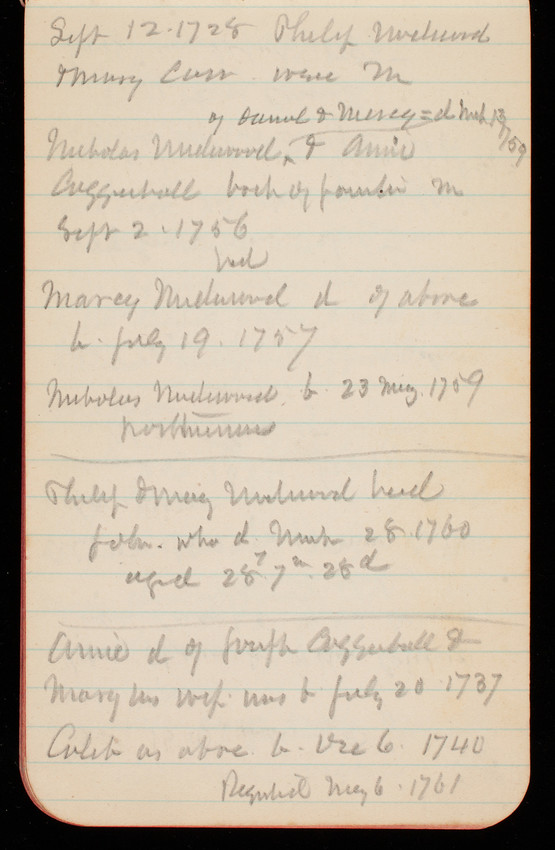 Sept 12. 1728 Philip Underwood
& Mary Carr were m
of Daniel & Mercy = d Mch 13/1759
Nicholas Underwood ^ & Amie
Coggeshall both of Jamestn m
Sept 2. 1756
had
Marcy Underwood d of above
b. July 19. 1757
Nicholas Underwood. b 23 May. 1759
posthumous
Philip & Mary Underwood had
John. who d. March 28. 1760
aged 28 y 7 m. 28 d
Amie d of Joseph Coggeshall &
Mary his wife was b July 20 1737
Caleb as above b. Dec 6. 1740
May 6. 1761